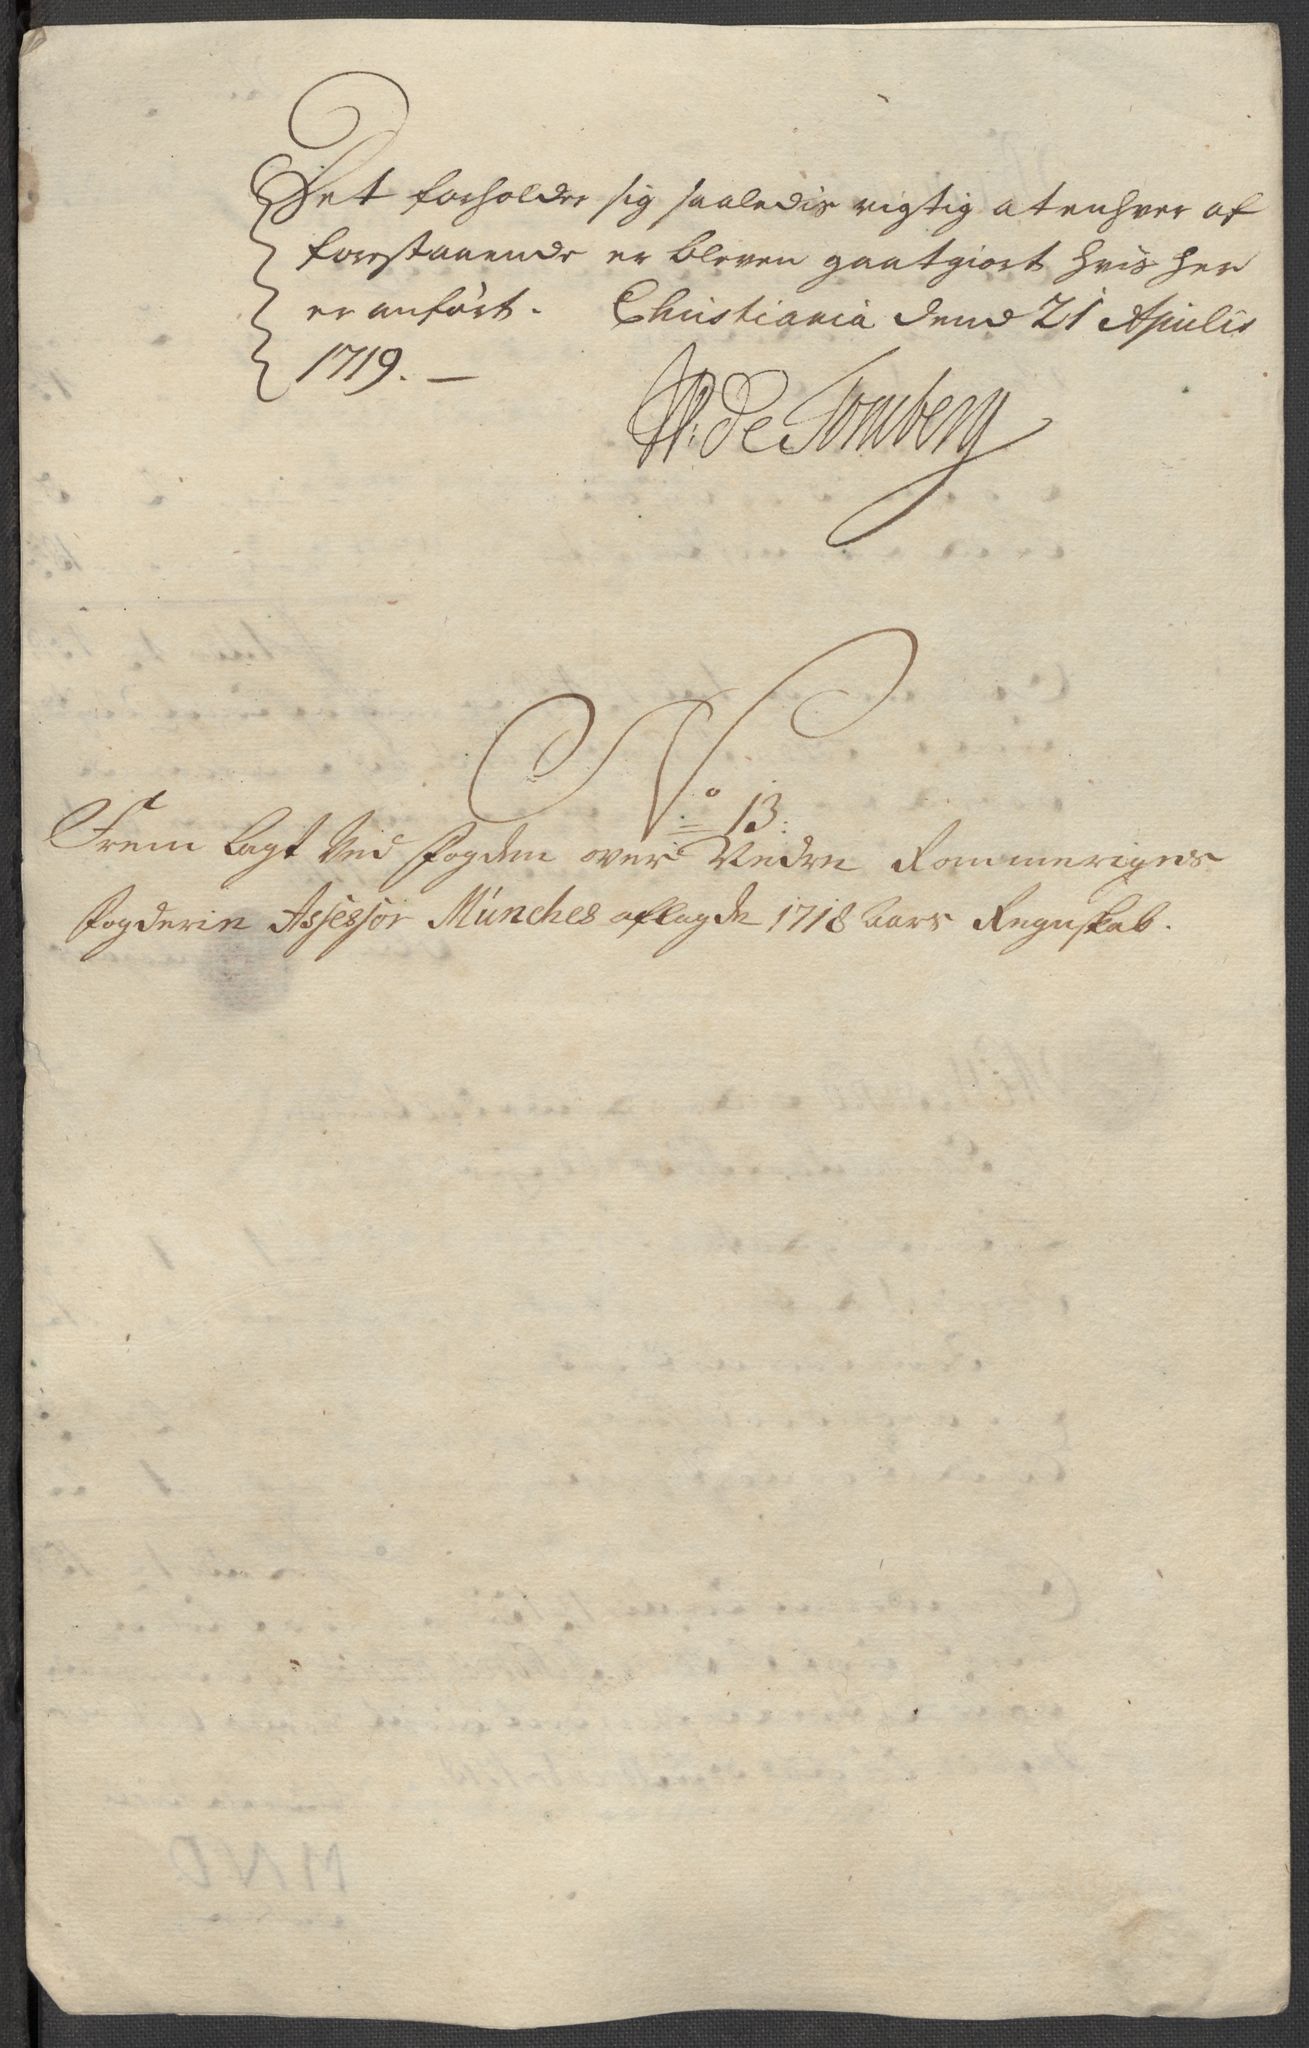 Det forholder sig saaledis rigtig at enhver af
forestaaende er bleven gaatgiort hvis her
er anført. Christiania dend 21 Aprilis
1719. —
de Tonsberg
No 13:
Frem lagt Ved fogden over Nedre Rommeriges
fogderie Assessor Münches aflagde 1718 Aars Regnskab.